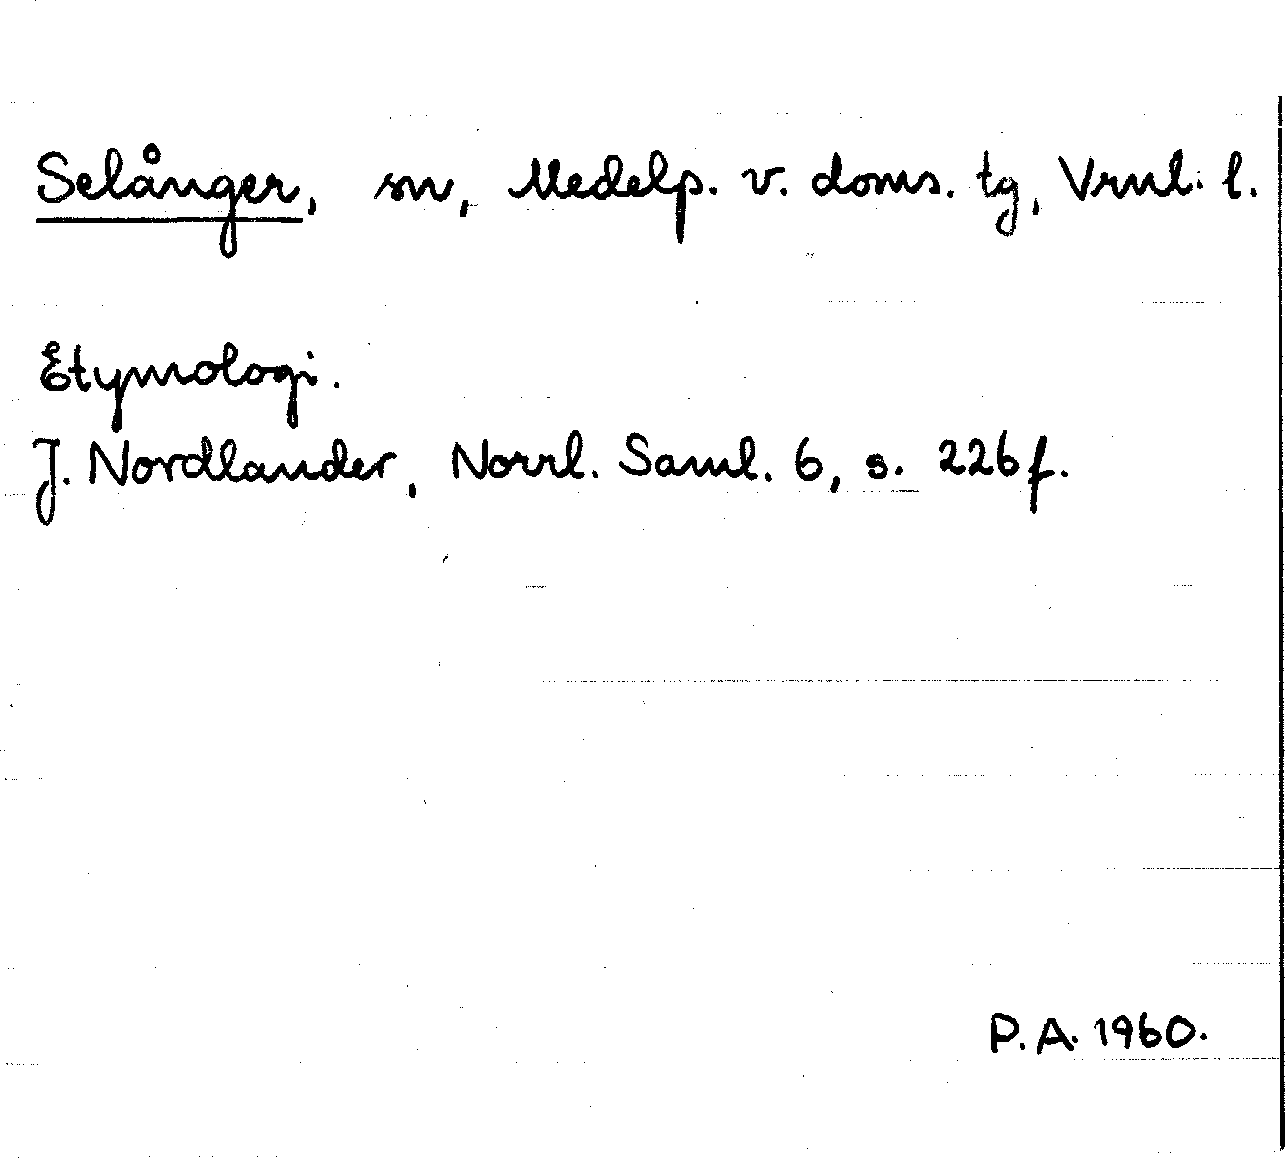 Selånger, sn, Medelp. v. doms. tg, Vrnl. l.
Etymologi.
J. Nordlander, Norrl. Saml. 6, s. 226 f.
P. A. 1960.